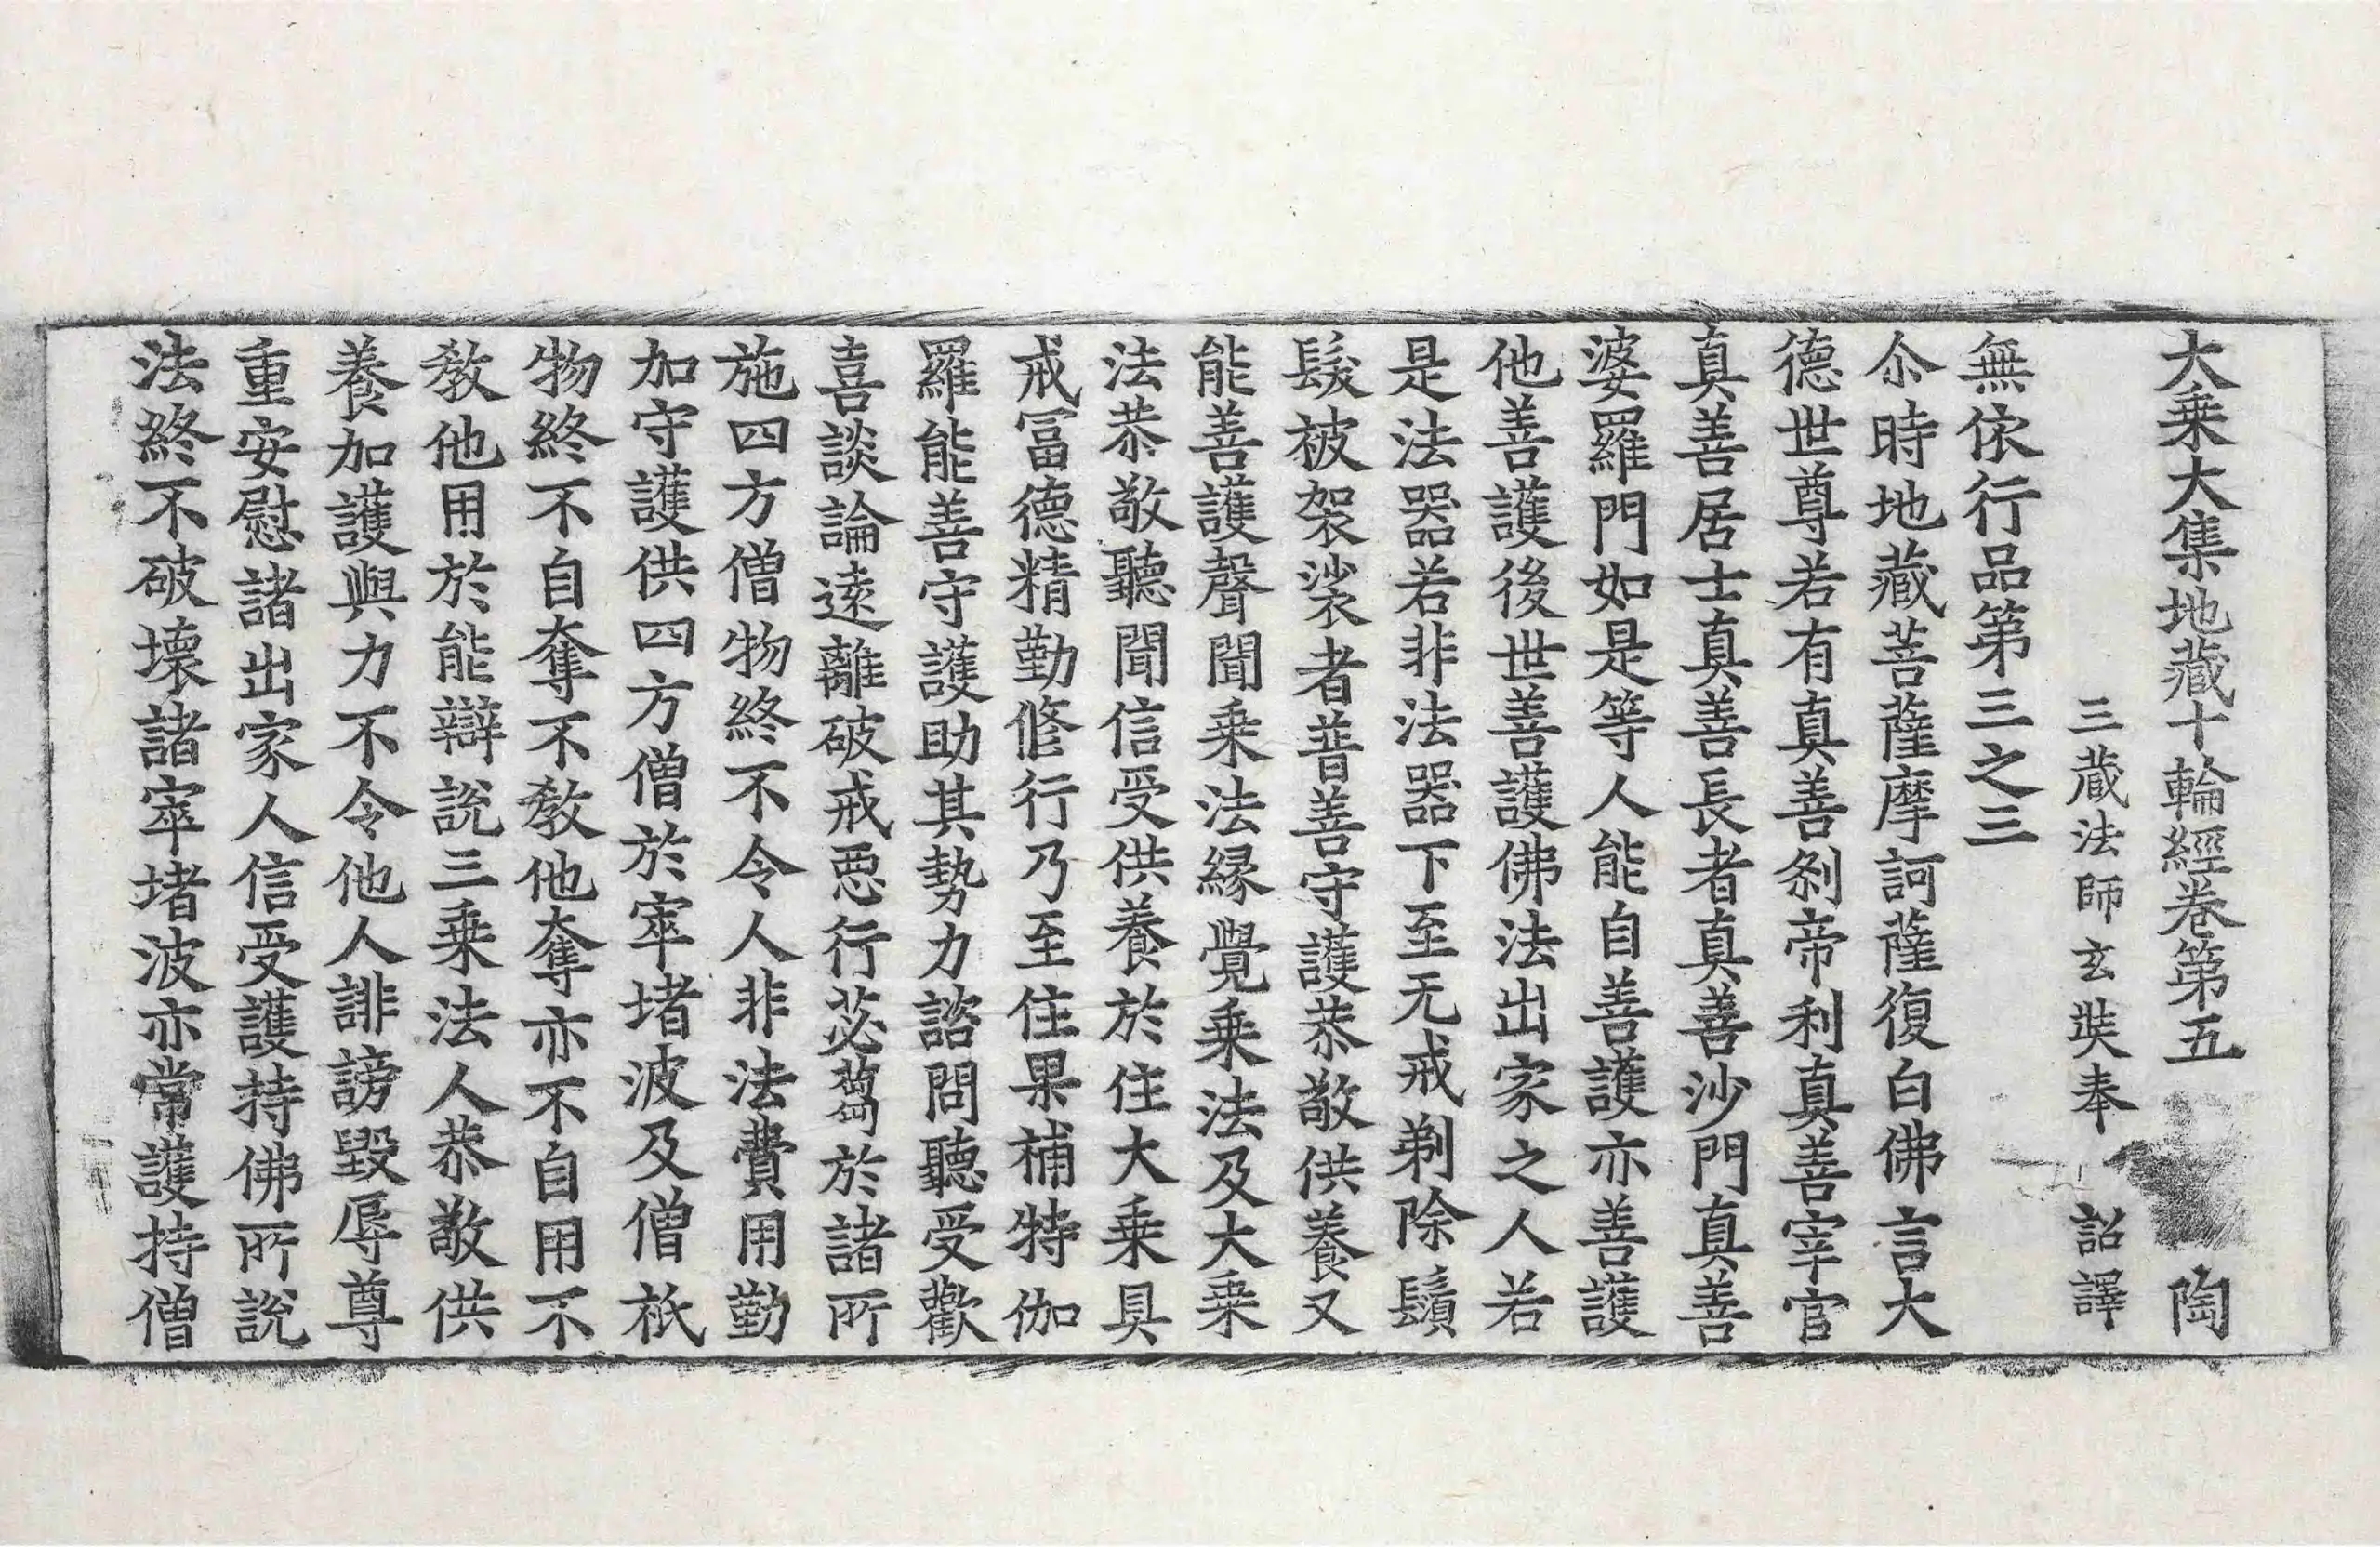 大乗大集地藏十輪經卷第五 陶
三藏法師玄奘奉 詔譯
無依行品第三之三
尒時地藏菩薩摩訶薩復白佛言大
德世尊若有真善刹帝利真善宰官
真善居士真善長者真善沙門真善
婆羅門如是等人能自善護亦善護
他善護後世善護佛法出家之人若
是法器若非法器下至无戒剃除鬚
髮被袈裟者普善守護恭敬供養又
能善護聲聞乗法縁覺乗法及大乗
法恭敬聽聞信受供養於住大乗具
戒冨德精勤修行乃至住果補特伽
羅能善守護助其勢力諮問聽受歡
喜談論逺離破戒惡行苾蒭於諸所
施四方僧物終不令人非法費用勤
加守護供四方僧於窣堵波及僧祇
物終不自奪不教他奪亦不自用不
教他用於能辯説三乗法人恭敬供
養加護與力不令他人誹謗毀辱尊
重安慰諸出家人信受護持佛所説
法終不破壞諸窣堵波亦常護持僧